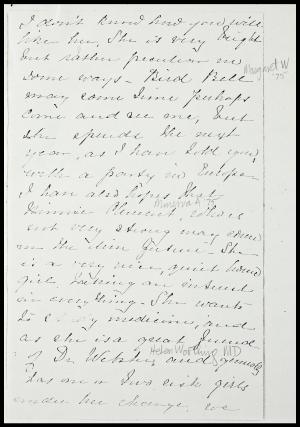 I don't know how you will
like her. She is very bright
but rather peculiar in
some ways - Bird Bell
Margaret W
'75
may come June perhaps
come and see me, but
she spends the next
year, as I have told you,
with a party in Europe
I have also hopes that
Minerva A '75
Clement, who is
not very strong may
in the dim future. She
is a very nice, quiet home
girl, taking an interest
in everything. She wants
to study medicine, and
as she is a great friend
of Dr Webster, and generally
Helen Worthing MD
has one or two sick girls
under her charge, we